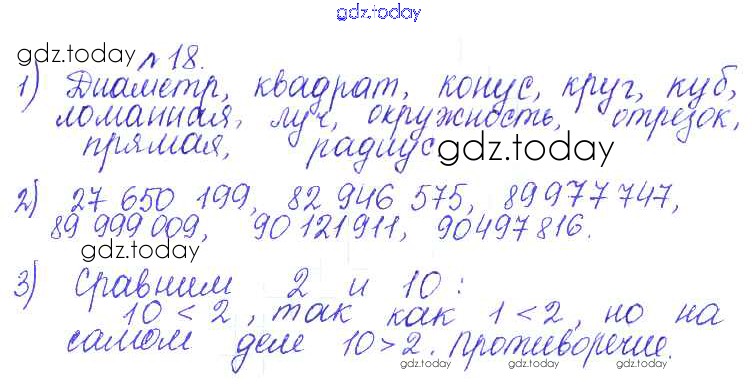 gdz.today
gdz.today № 18.
1) Диаметр, квадрат, конус, круг, куб,
ломанная, луч, окружность, отрезок,
прямая, радиус gdz.today
2) 27 650 199, 82 946 575, 89 977 747,
89 999 009, 90 121 911, 90 497 816.
gdz.today
3) Сравним 2 и 10 :
10 < 2, так как 1 < 2, но на
самом деле 10 > 2. Противоречие.
gdz.today gdz.today